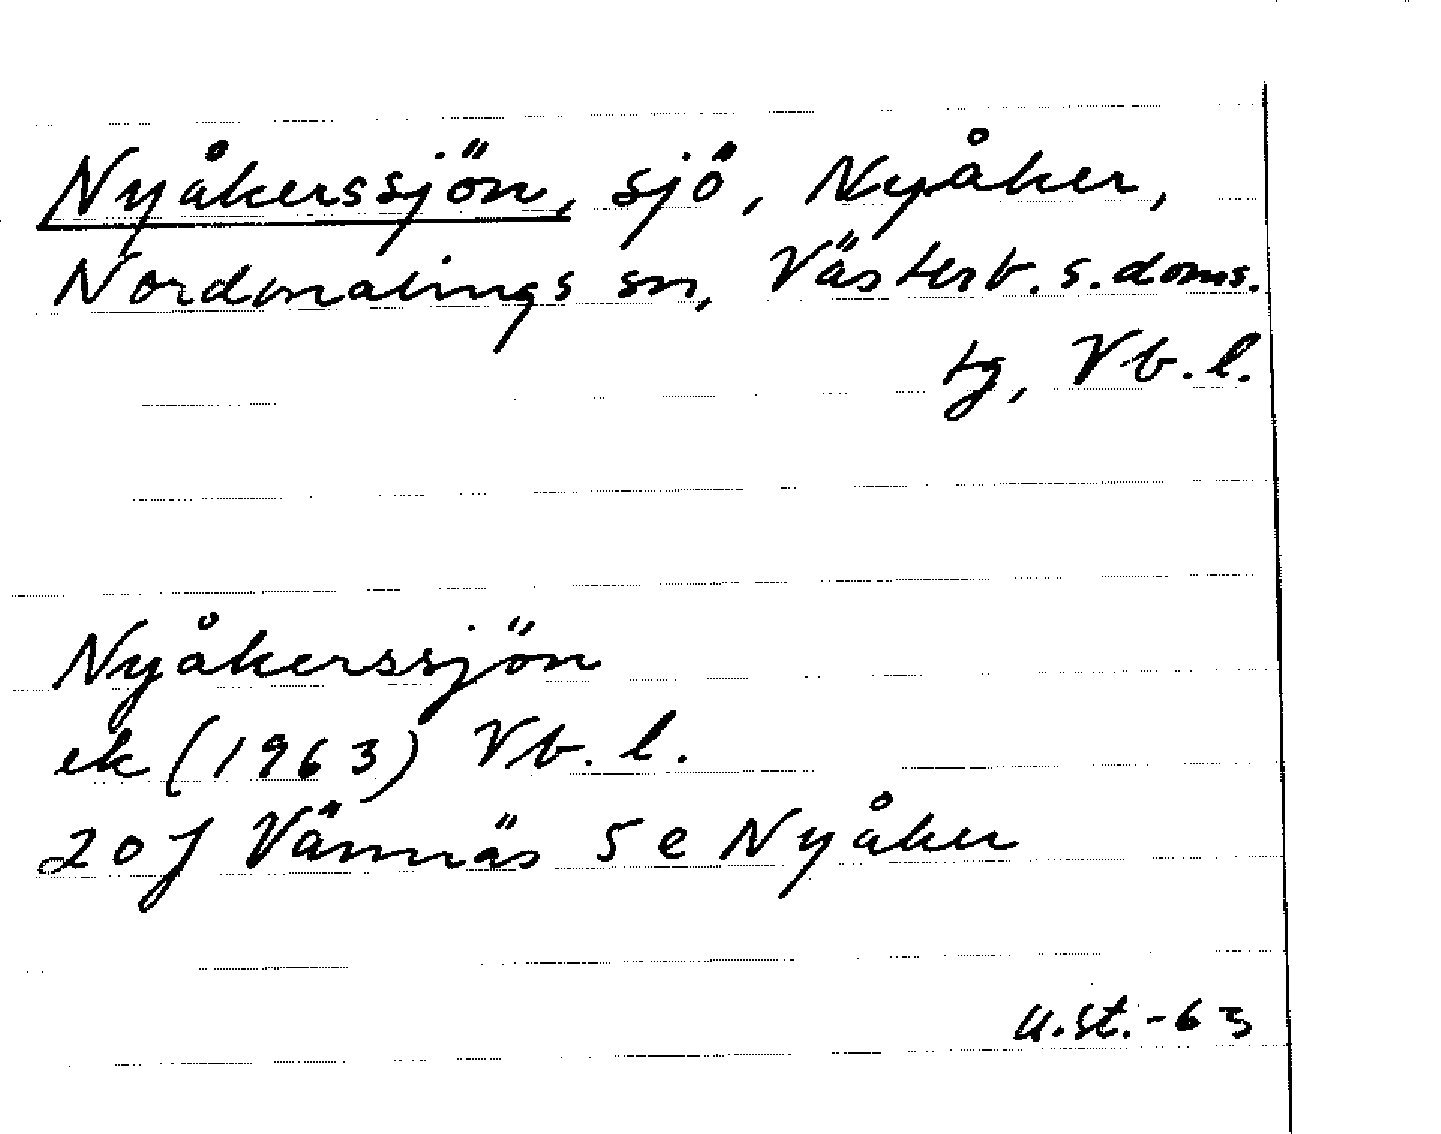 Nyåkerssjön, sjö, Nyåker,
Nordmalings sn, Västerb. s. doms.
tg, Vb. l.
Nyåkerssjön
ek (1963) Vb. l.
20 J Vännäs 5 e Nyåker
u.st.-63